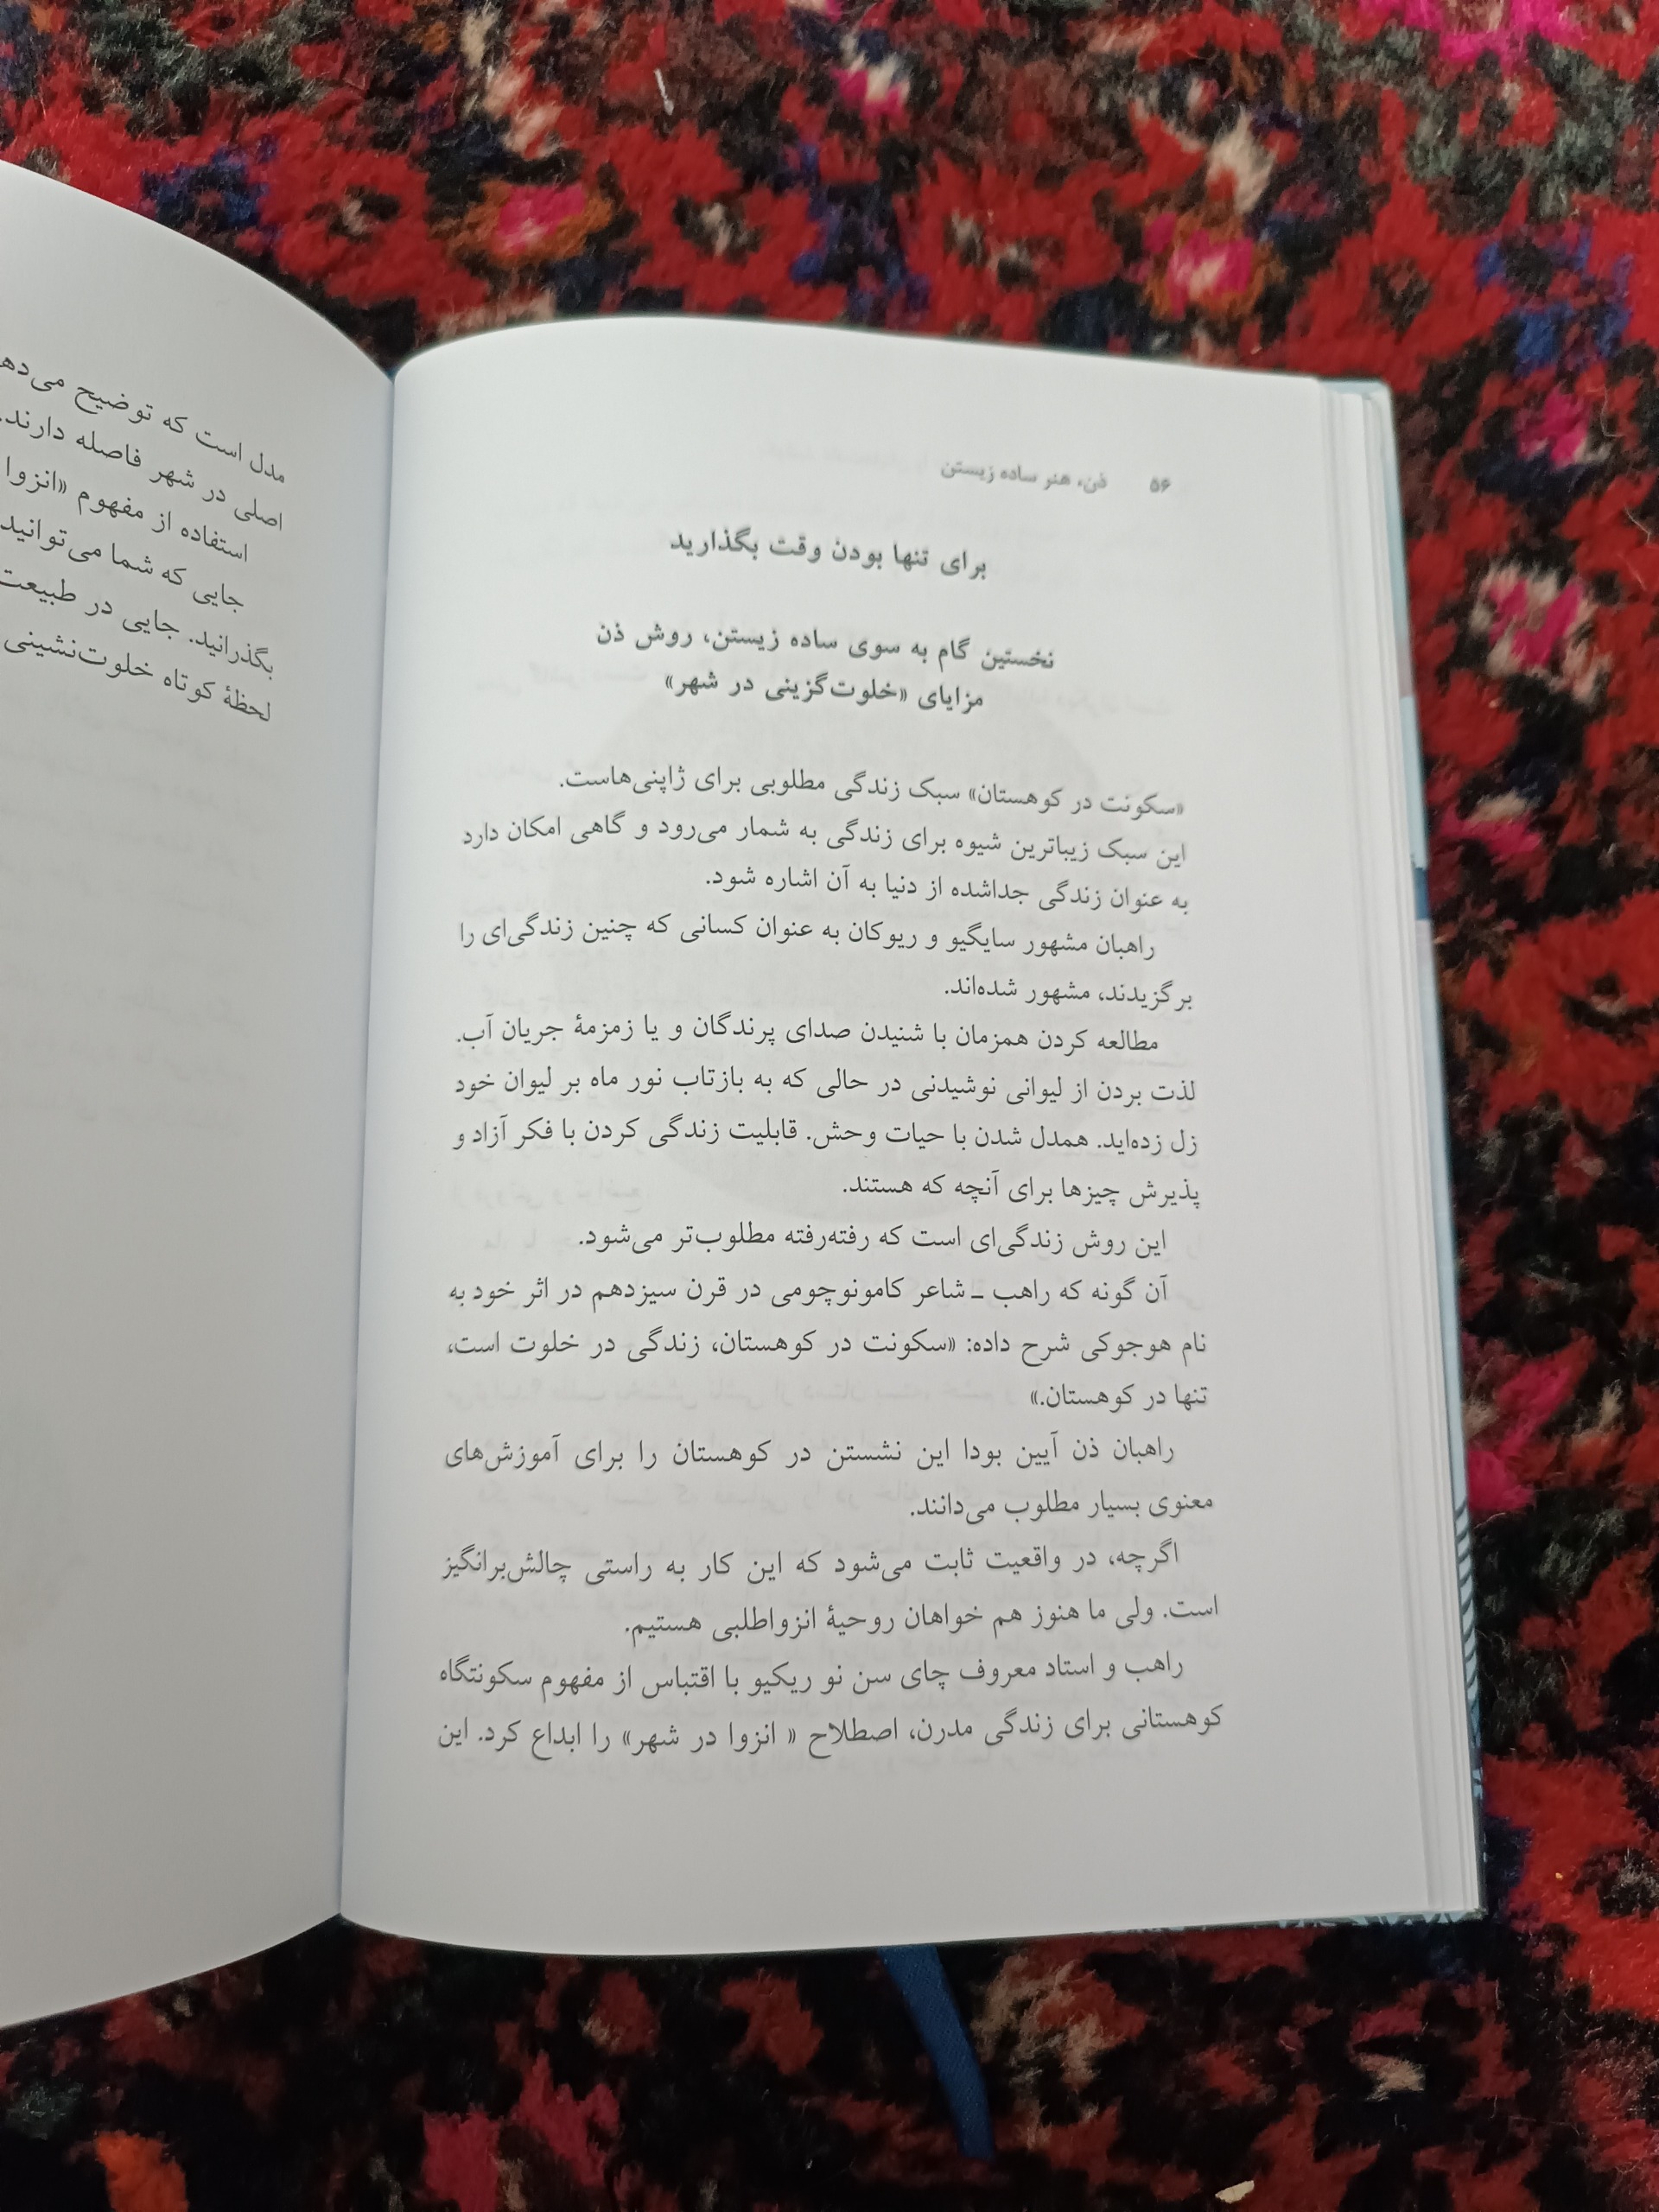 ۵۶ ذن، هنر ساده زیستن
برای تنها بودن وقت بگذارید
نخستین گام به سوی ساده زیستن، روش ذن
مزایای «خلوت‌گزینی در شهر»
«سکونت در کوهستان» سبک زندگی مطلوبی برای ژاپنی‌هاست.
این سبک زیباترین شیوه برای زندگی به شمار می‌رود و گاهی امکان دارد
به عنوان زندگی جداشده از دنیا به آن اشاره شود.
راهبان مشهور سایگیو و ریوکان به عنوان کسانی که چنین زندگی‌ای را
برگزیدند، مشهور شده‌اند.
مطالعه کردن همزمان با شنیدن صدای پرندگان و یا زمزمهٔ جریان آب.
لذت بردن از لیوانی نوشیدنی در حالی که به بازتاب نور ماه بر لیوان خود
زل زده‌اید. همدل شدن با حیات وحش. قابلیت زندگی کردن با فکر آزاد و
پذیرش چیزها برای آنچه که هستند.
این روش زندگی‌ای است که رفته‌رفته مطلوب‌تر می‌شود.
آن گونه که راهب ـ شاعر کامونوچومی در قرن سیزدهم در اثر خود به
نام هوجوکی شرح داده: «سکونت در کوهستان، زندگی در خلوت است،
تنها در کوهستان.»
راهبان ذن آیین بودا این نشستن در کوهستان را برای آموزش‌های
معنوی بسیار مطلوب می‌دانند.
اگرچه، در واقعیت ثابت می‌شود که این کار به راستی چالش‌برانگیز
است. ولی ما هنوز هم خواهان روحیهٔ انزواطلبی هستیم.
راهب و استاد معروف چای سن نو ریکیو با اقتباس از مفهوم سکونتگاه
کوهستانی برای زندگی مدرن، اصطلاح « انزوا در شهر» را ابداع کرد. این
مدل است که توضیح می‌ده
اصلی در شهر فاصله دارند.
استفاده از مفهوم «انزوا
جایی که شما می‌توانید
بگذرانید. جایی در طبیعت
لحظهٔ کوتاه خلوت‌نشینی